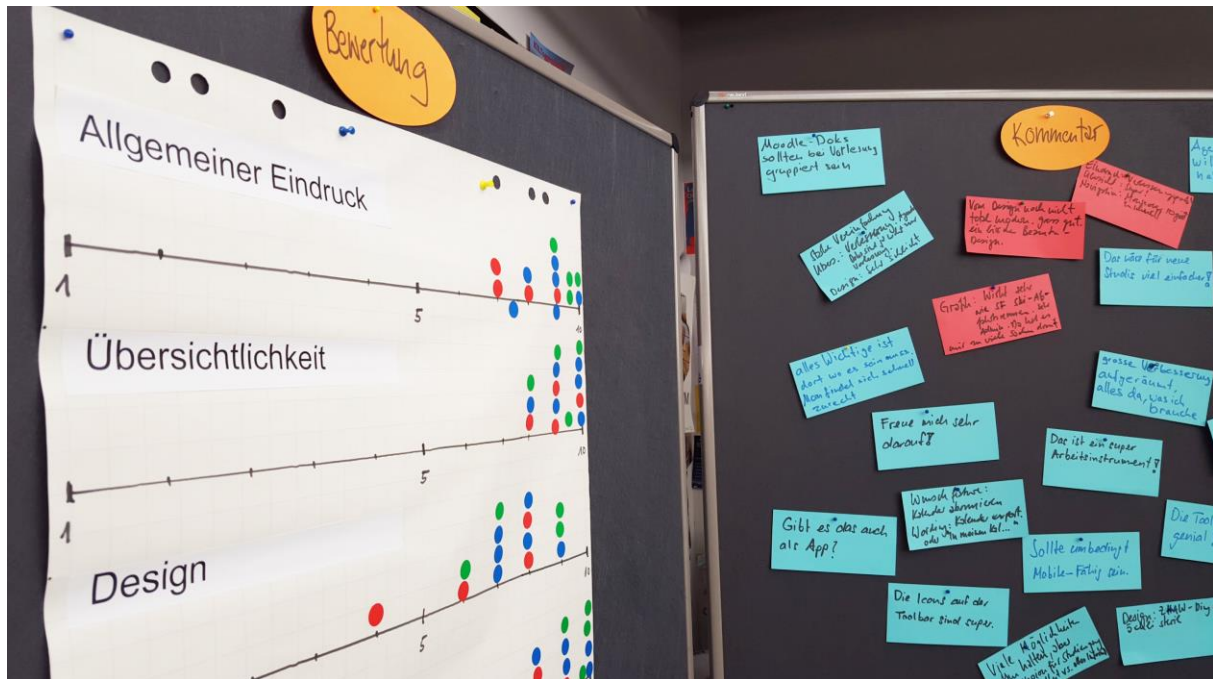 Bewertung
Allgemeiner Eindruck
1
5
10
Übersichtlichkeit
1
5
10
Design
5
10
Kommentar
Moodle-Doks
sollten bei Vorlesung
gruppiert sein
Vom Design noch nicht
total modern. gross gut.
ein bisschen
Design.
Das wäre für neue
Studis viel einfacher!
Graph: Wirkt sehr
wie SF Ski-Ab-
fahrtsrennen. sehr
mir zu viele
alles Wichtige ist
dort wo es sein muss.
Man findet sich schnell
zurecht
grosse Verbesserung
aufgeräumt,
alles da, was ich
brauche
Freue mich sehr
darauf!
Das ist ein super
Arbeitsinstrument!
Wunsch
Kalender abonnieren
Kalender export.
oder "in meinen Kal..."
Gibt es das auch
als App?
Sollte unbedingt
Mobile-Fähig sein.
Die Tool
genial
Die Icons auf der
Toolbar sind super.
Viele Möglichkeiten
Design: ZHAW-Ding